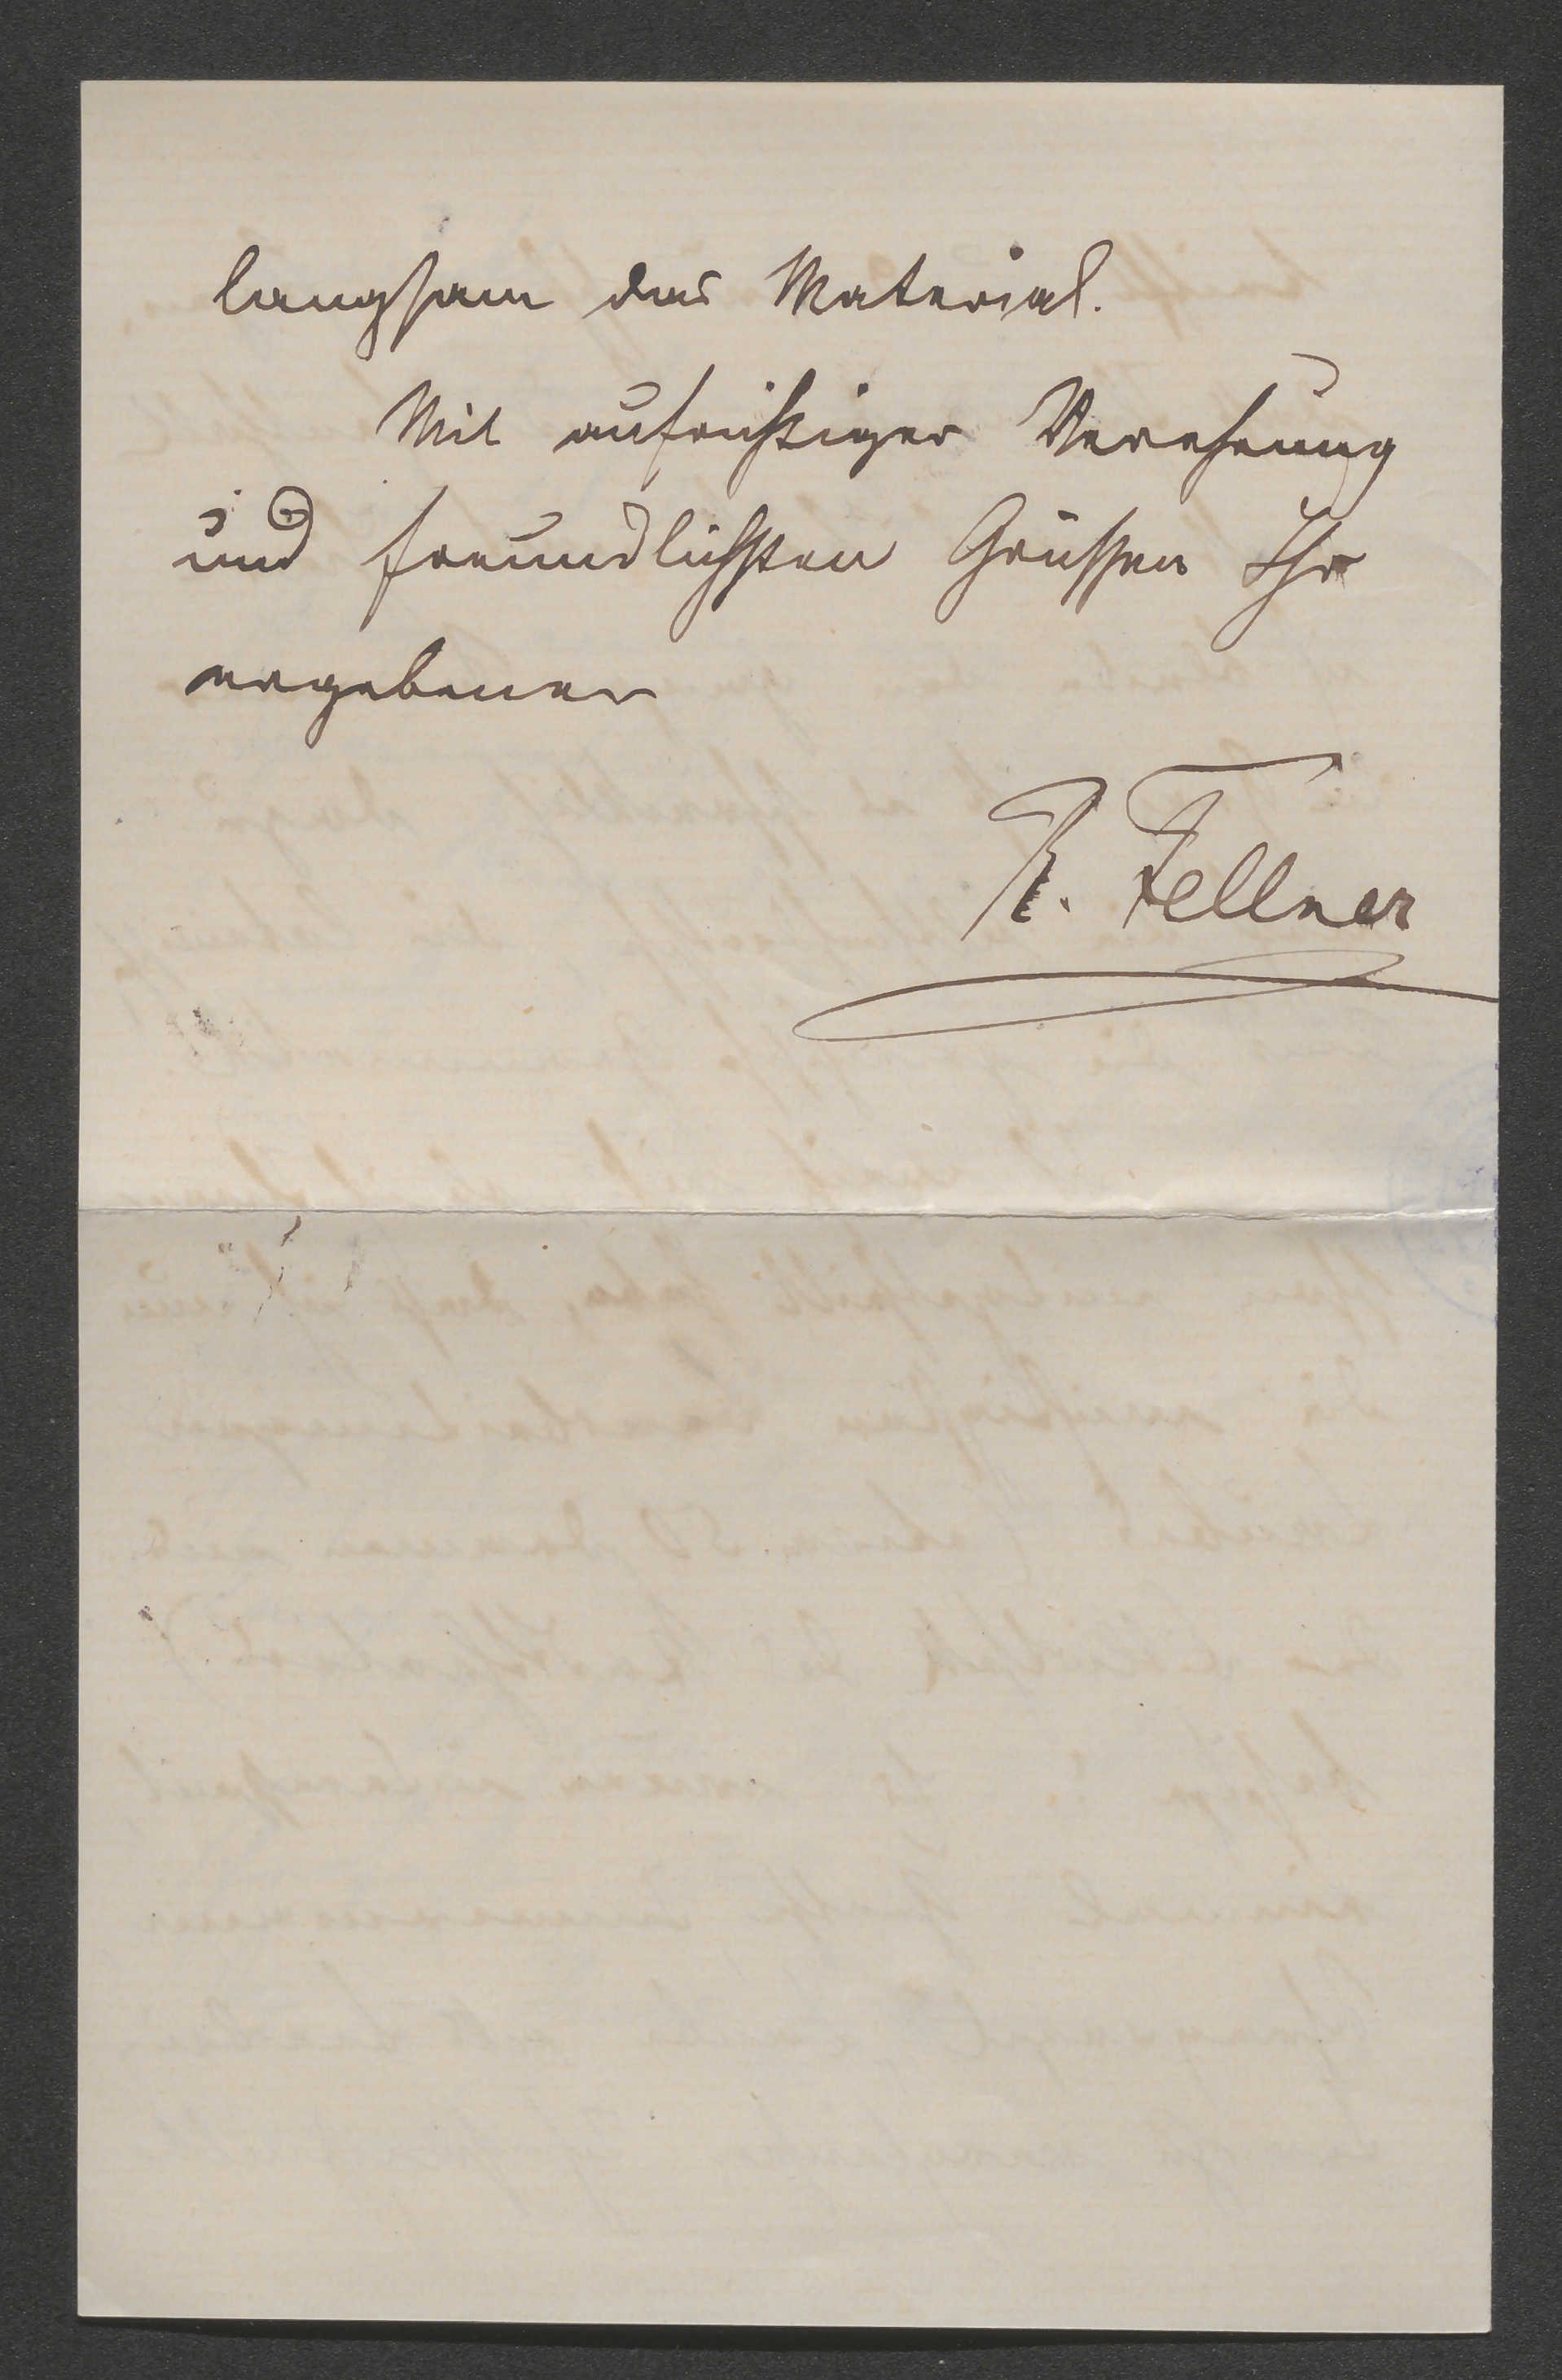 langsam das Material.
Mit aufrichtiger Verehrung
und freundlichsten Grüssen Ihr
ergebener
R. Fellner